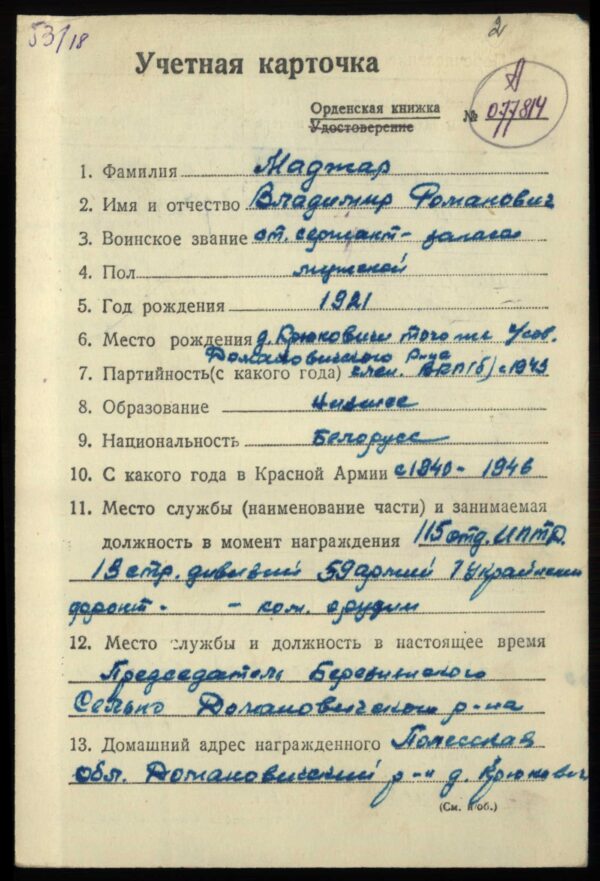 53/18
2
Учетная карточка
Орденская книжка
Удостоверение
№ А 077814
1. Фамилия Маджар
2. Имя и отчество Владимир Романович
3. Воинское звание ст. сержант - запаса
4. Пол мужской
5. Год рождения 1921
6. Место рождения д. Крюковичи того же
Домановичского р-на
7. Партийность (с какого года) член ВКП(б) с 1943
8. Образование низшее
9. Национальность Белорусс
10. С какого года в Красной Армии с 1940 - 1946
11. Место службы (наименование части) и занимаемая
должность в момент награждения 115 отд. ИПТД.
13 стр. дивизии 59 армии 1 Украински
фронт. - - ком. орудия
12. Место службы и должность в настоящее время
Председатель
Сельпо Домановичского р-на
13. Домашний адрес награжденного Полесская
обл. Домановичский р-н д. Крюкович
(См. на об.)